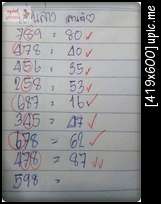 769 = 80 ✓
478 : 40 ✓
456 : 35 ✓
258 = 53 ✓
687 = 16 ✓
345 = 47 ✓
678 = 62 ✓
478 = 87 ✓✓
598 =
[419x600] upic.me